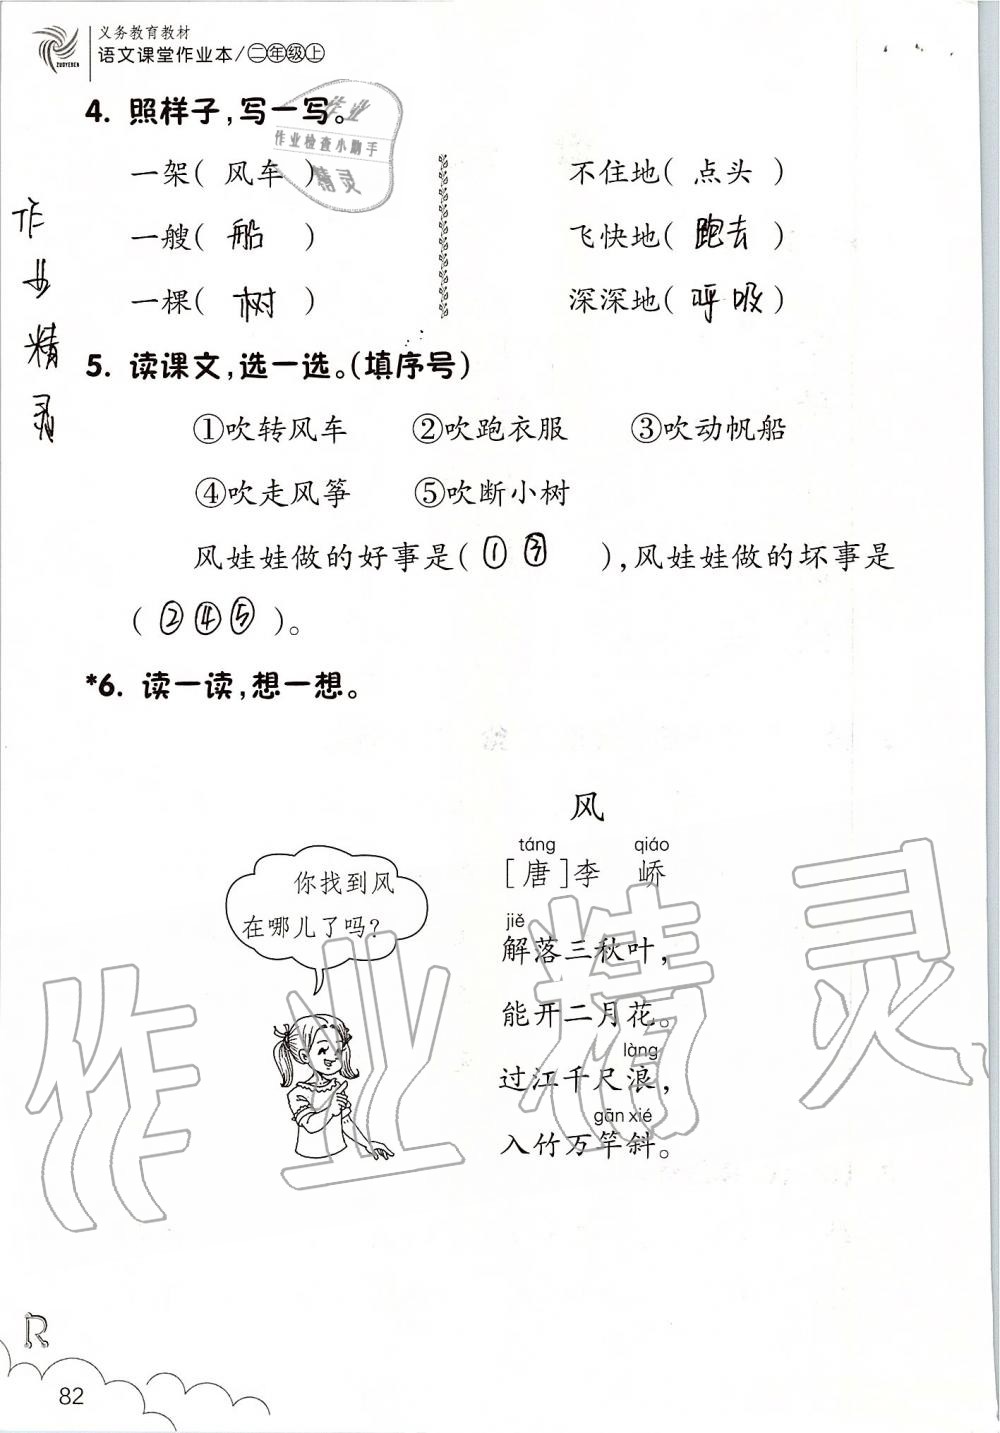 义务教育教材
语文课堂作业本/二年级上
ZUOYEBEN
4. 照样子,写一写。
作业
作业检查小助手
精灵
一架( 风车 ) 不住地( 点头 )
一艘( 船 ) 飞快地( 跑去 )
一棵( 树 ) 深深地( 呼吸 )
作业精灵
5. 读课文,选一选。(填序号)
①吹转风车 ②吹跑衣服 ③吹动帆船
④吹走风筝 ⑤吹断小树
风娃娃做的好事是( ① ③ ),风娃娃做的坏事是
( ② ④ ⑤ )。
*6. 读一读,想一想。
你找到风
在哪儿了吗?
风
táng qiáo
[唐]李 峤
jiě
解落三秋叶,
能开二月花。
làng
过江千尺浪,
gān xié
入竹万竿斜。
作业精灵
R
82